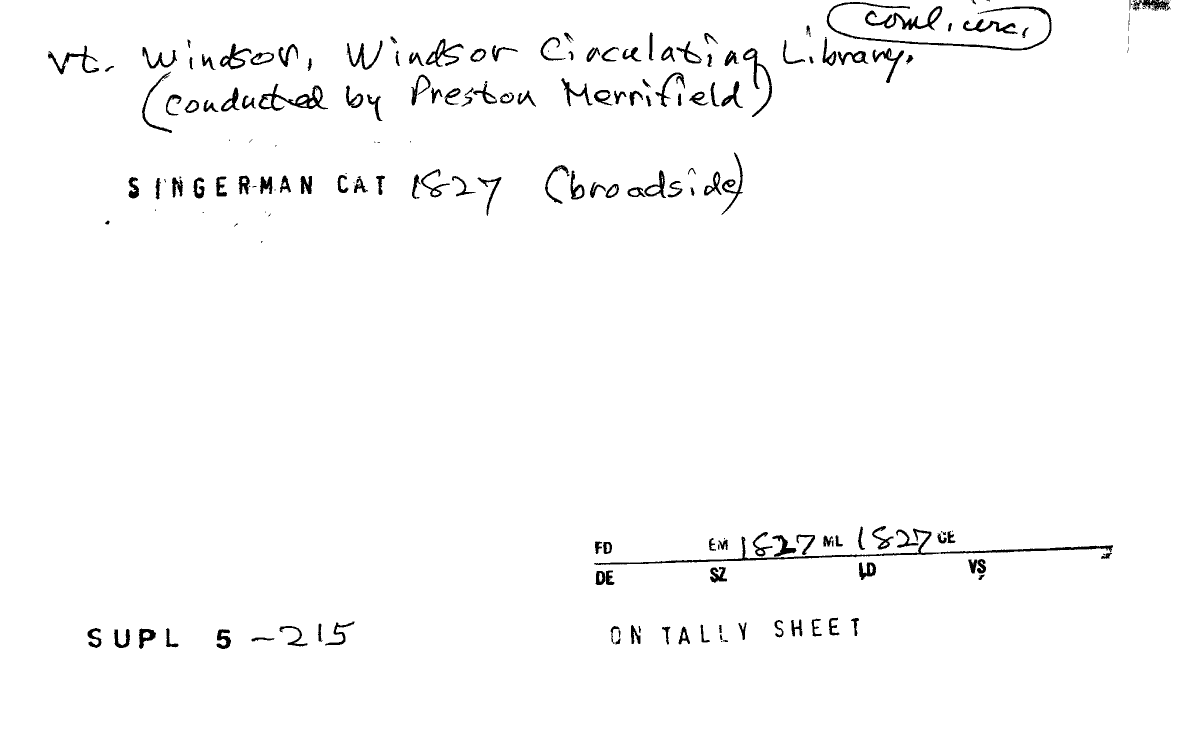 coml. circ.
vt. Windsor, Windsor Circulating Library.
(conducted by Preston Merrifield)
SINGERMAN CAT 1827 (broadside)
FD EM 1827 ML 1827 CE
DE SZ LD VS
SUPL 5 -215 ON TALLY SHEET